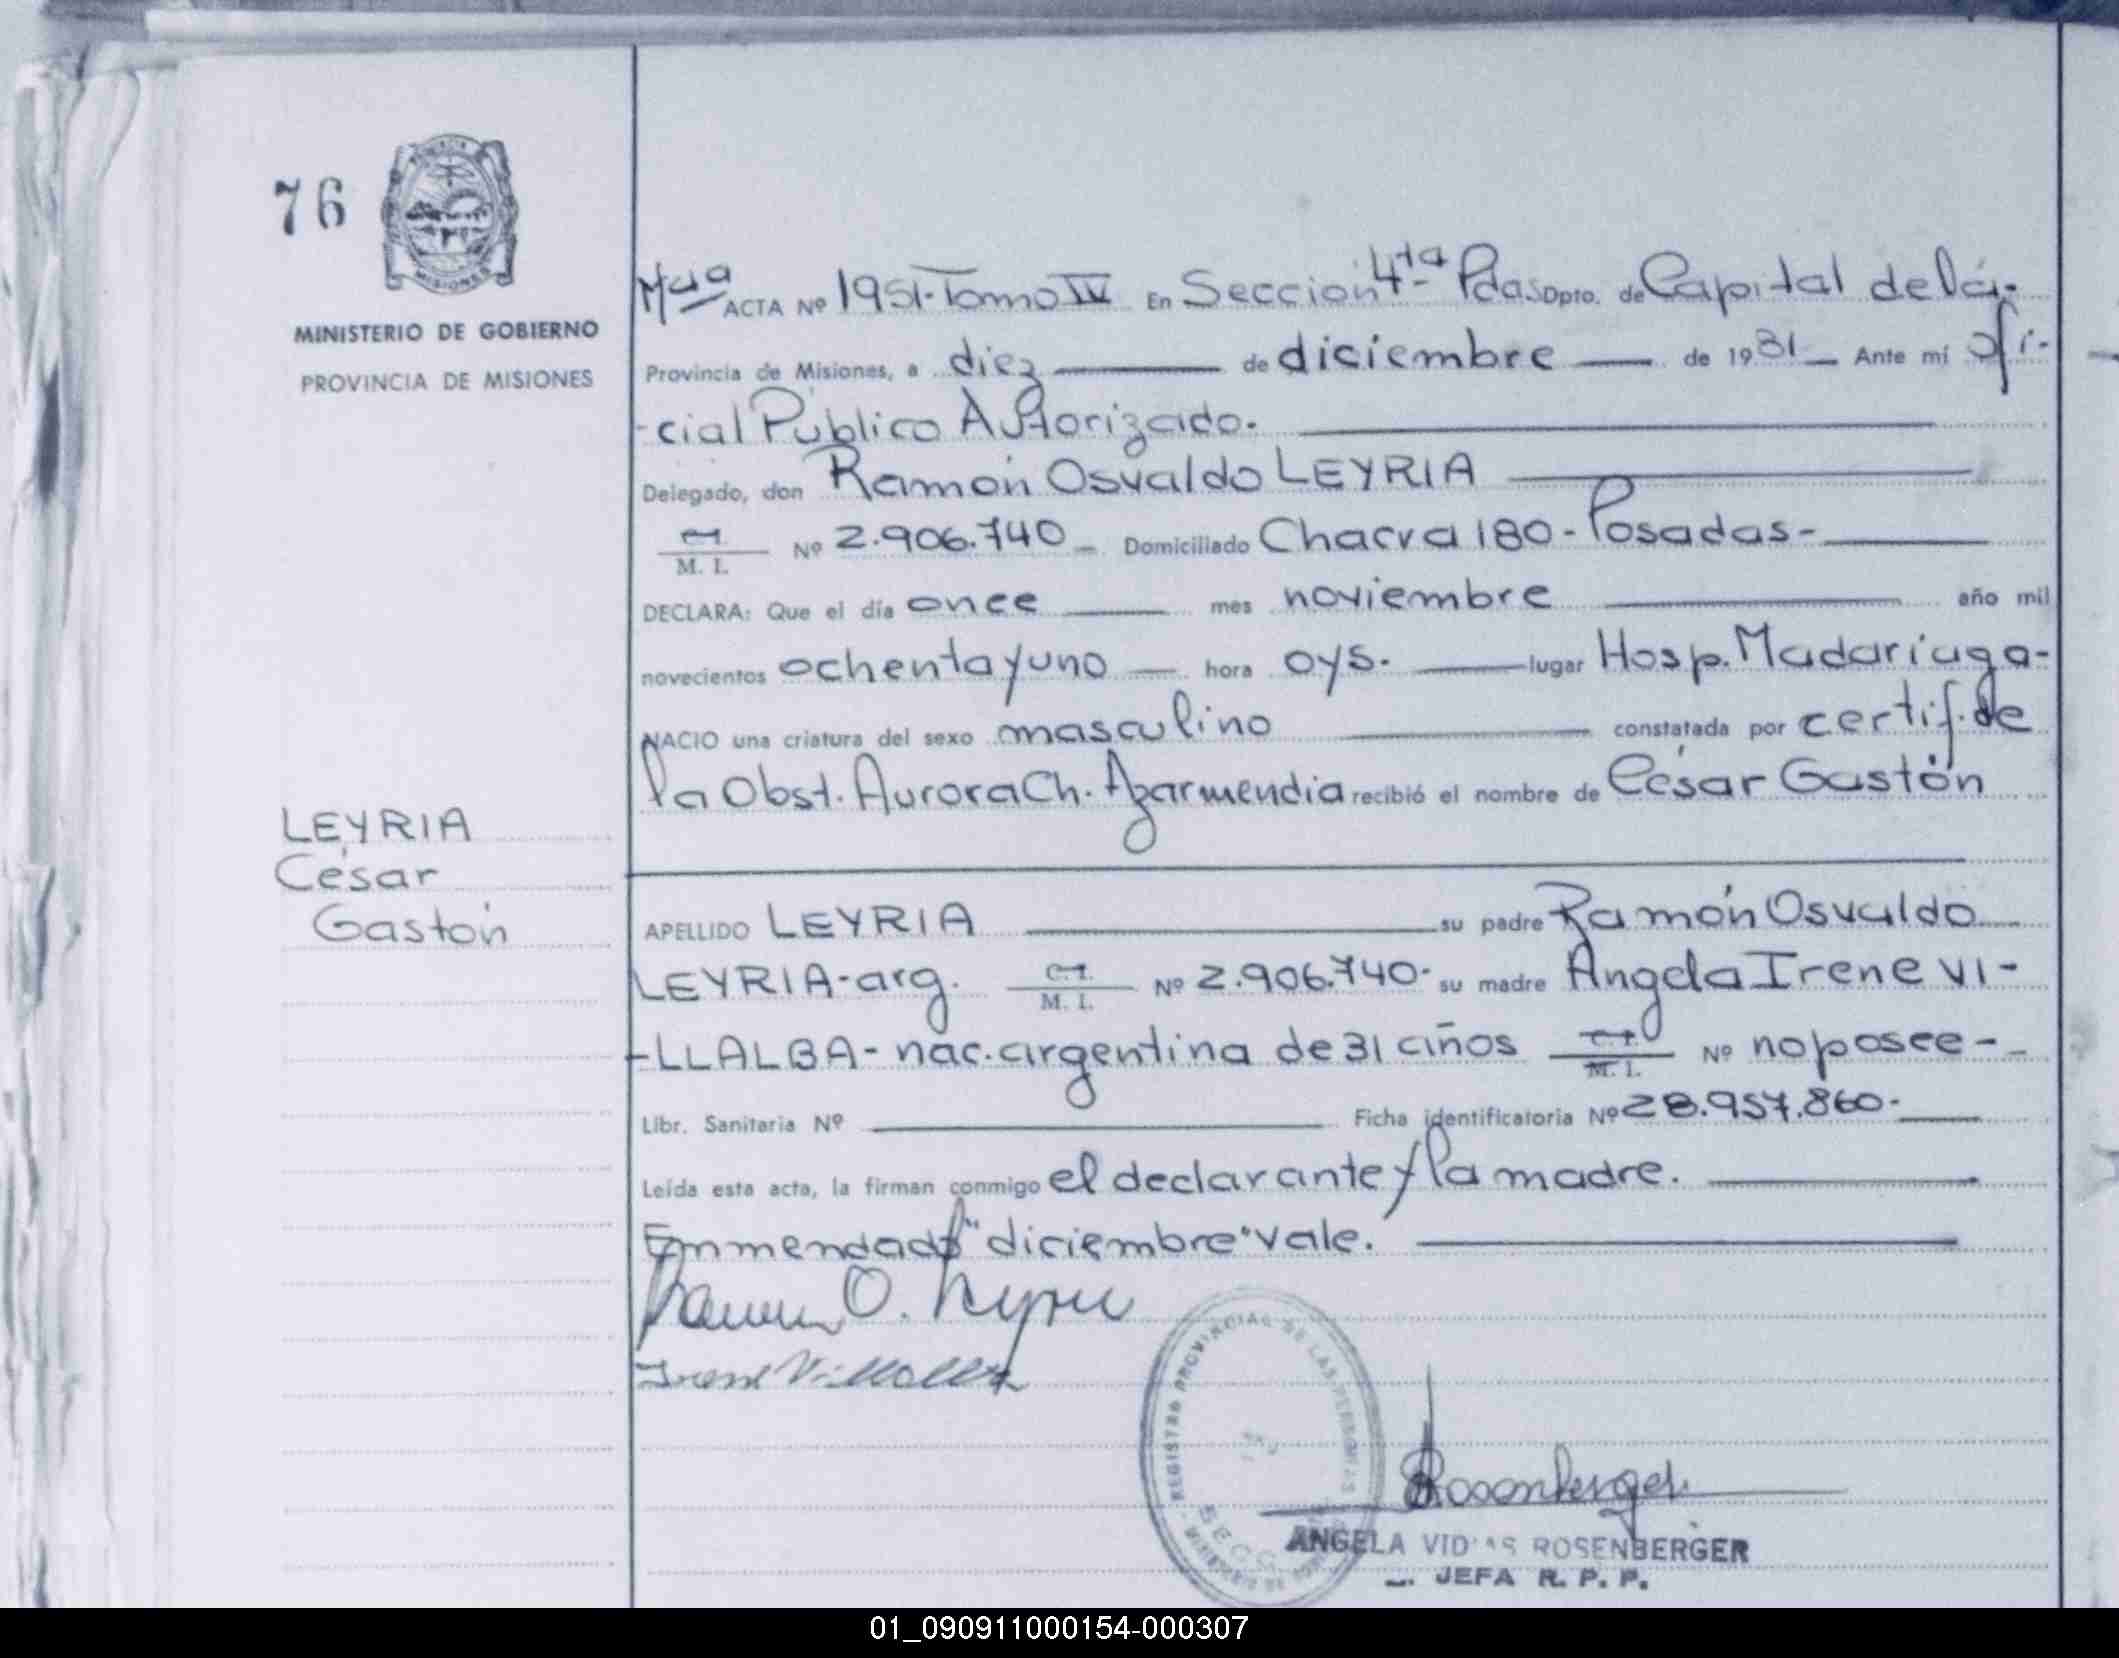 76
MISIONES
MINISTERIO DE GOBIERNO
PROVINCIA DE MISIONES
LEYRIA
César
Gastón
ACTA Nº 1951-Tomo IV En Sección 4ta Pdas Dpto. de Capital de la
Provincia de Misiones, a diez de diciembre de 1981 Ante mí Ofi-
-cial Público Autorizado.
Delegado, don Ramón Osvaldo LEYRIA
C.I. M. I. Nº 2.906.740 Domiciliado Chacra 180-Posadas-
DECLARA: Que el día once mes noviembre año mil
novecientos ochenta y uno hora 0y5. lugar Hosp. Madariaga-
NACIO una criatura del sexo masculino constatada por certif. de
la Obst. Aurora Ch. Azarmendia recibió el nombre de César Gastón
APELLIDO LEYRIA su padre Ramón Osvaldo
LEYRIA-arg. C.I. M. I. Nº 2.906.740- su madre Angela Irene VI-
-LLALBA- nac. argentina de 31 años C.I. M. I. Nº no posee-
Libr. Sanitaria Nº Ficha identificatoria Nº 28.957.860-
Leída esta acta, la firman conmigo el declarante y la madre.
Enmendado "diciembre" vale.
Irene Villalba
REGISTRO PROVINCIAL DE LAS PERSONAS
Rosenberger
ANGELA VIDAS ROSENBERGER
JEFA R. P. P.
01_090911000154-000307